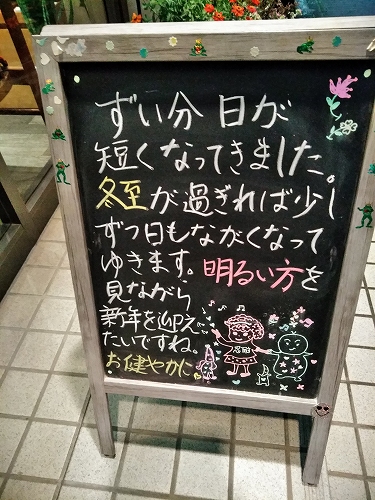 ずい分 日が
短くなってきました。
冬至が過ぎれば少し
ずつ日もながくなって
ゆきます。明るい方を
見ながら
新年を迎え
たいですね。
お健やかに